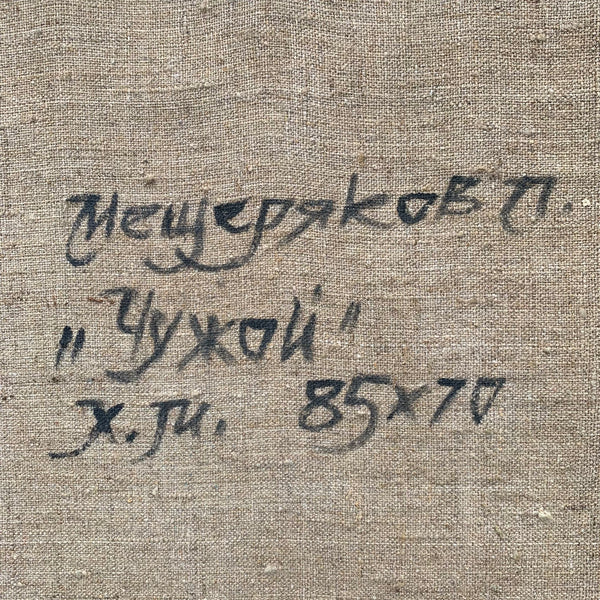 Мещеряков П.
„Чужой"
х.м. 85х70